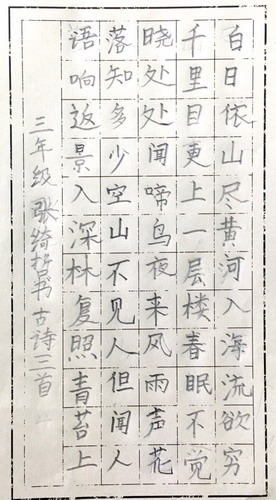 白日依山尽黄河入海流欲穷
千里目更上一层楼春眠不觉
晓处处闻啼鸟夜来风雨声花
落知多少空山不见人但闻人
语响返景入深林复照青苔上
三年级 张绮 书古诗三首